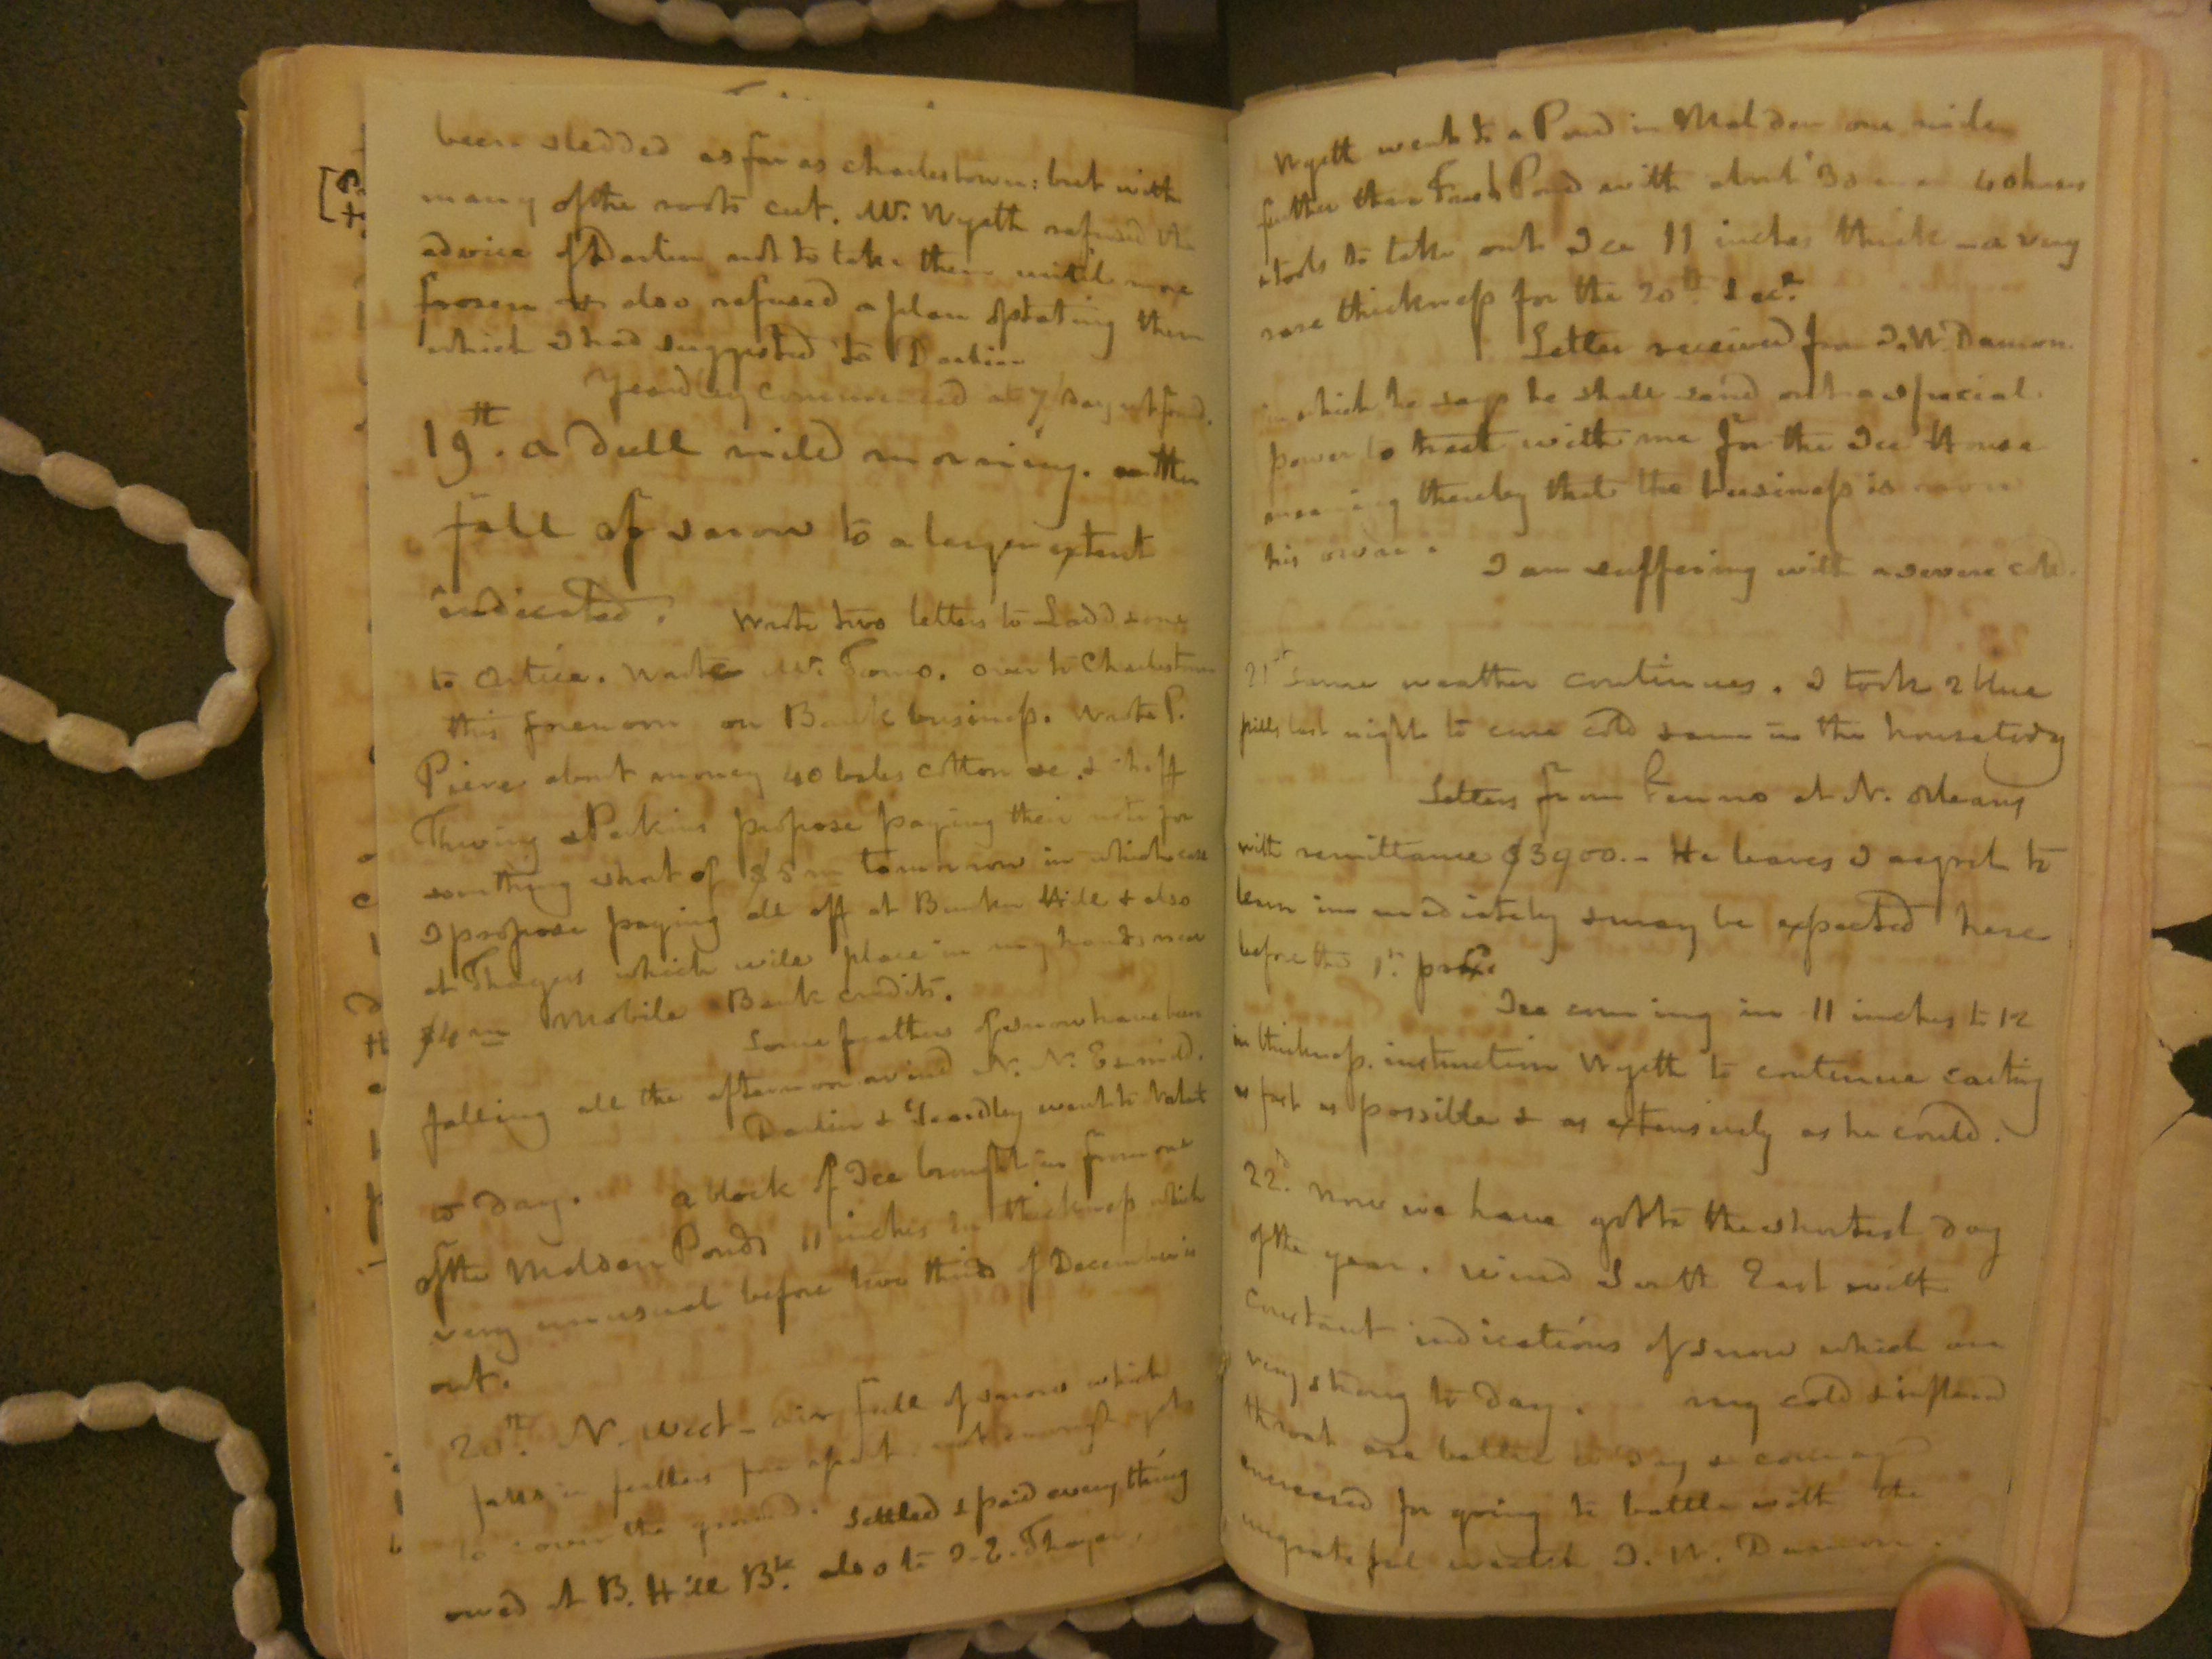 been sledded as far as Charlestown: but with
many of the roots cut. Mr. Wyeth refused the
advice of Darlin not to take them until more
frozen & also refused a plan of stating them
which I had suggested to Darlin
Yeardley commenced at 7/ day
19th. a dull mild morning. another
fall of snow to a larger extent
indicated. Wrote two letters to Ladd & one
to wrote Mr. over to Charlestown
this forenoon on Bank business. Wrote P.
about money 40 bales cotton &c. &
Thwing & Perkins propose paying their note for
something short of $5m tomorrow in which case
I propose paying all off at Bunker Hill & also
at Thayers which will place in my hands near
$4m Mobile Bank credits.
Some feathers of snow have been
falling all the afternoon wind N. N. E & mild.
Darlin & Yeardley went to
to day. a block of Ice brought in from one
of the Malden Ponds 11 inches in thickness which
very unusual before two thirds of December is
out.
20th. N. West – air full of snow which
falls in feathers far apart. not enough yet
to cover the ground. Settled & paid everything
owed at B. Hill Bk. also to Thayer.
Wyeth went to a Pond in Malden one mile
further than Fresh Pond with about 30 men 40 horses
& tools to take out Ice 11 inches thick – a very
rare thickness for the 20th Decr.
Letter received from J. W. Damon.
in which he says he shall send out a special
power to treat with me for the Ice House
meaning thereby that the business is
his own.
I am suffering with a severe cold.
21st Same weather continues. I took 2 blue
pills last night to cure cold & am in the house today
Letters from Fenno at N. Orleans
with remittance $3900. – He leaves I regret to
learn immediately & may be expected here
before the 1st prox
Ice coming in 11 inches to 12
in thickness. instruction Wyeth to continue carting
as fast as possible & as extensively as he could.
22d. Now we have got to the shortest day
of the year. wind South East with
constant indications of snow which are
very strong to day. my cold & inflamed
throat are better to day & courage
increased for going to battle with the
ungrateful wretch J. W. Damon.